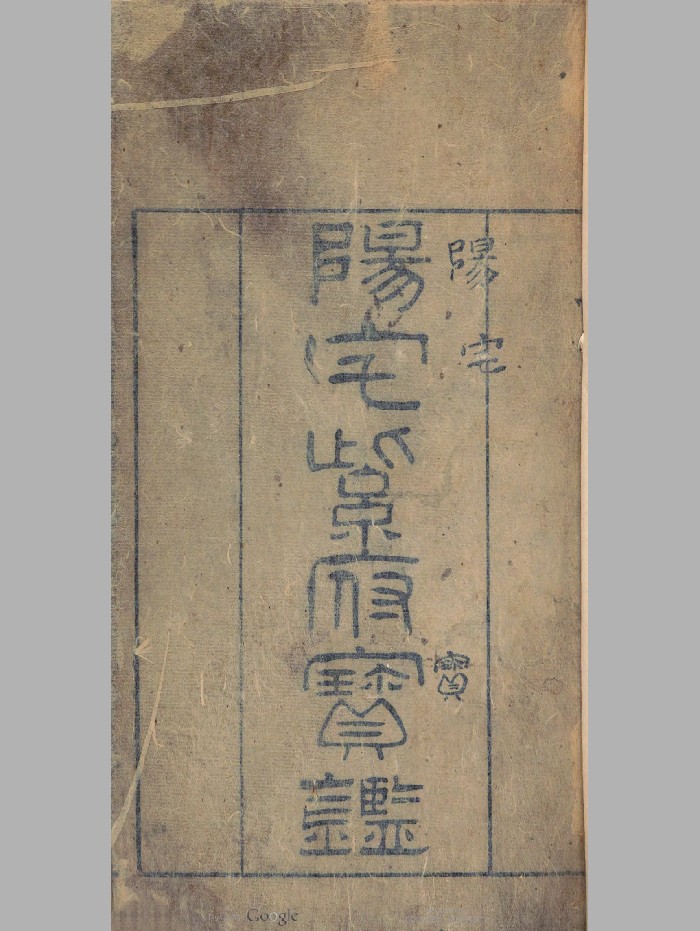 陽宅
寶
陽宅紫府寶鑑
Google